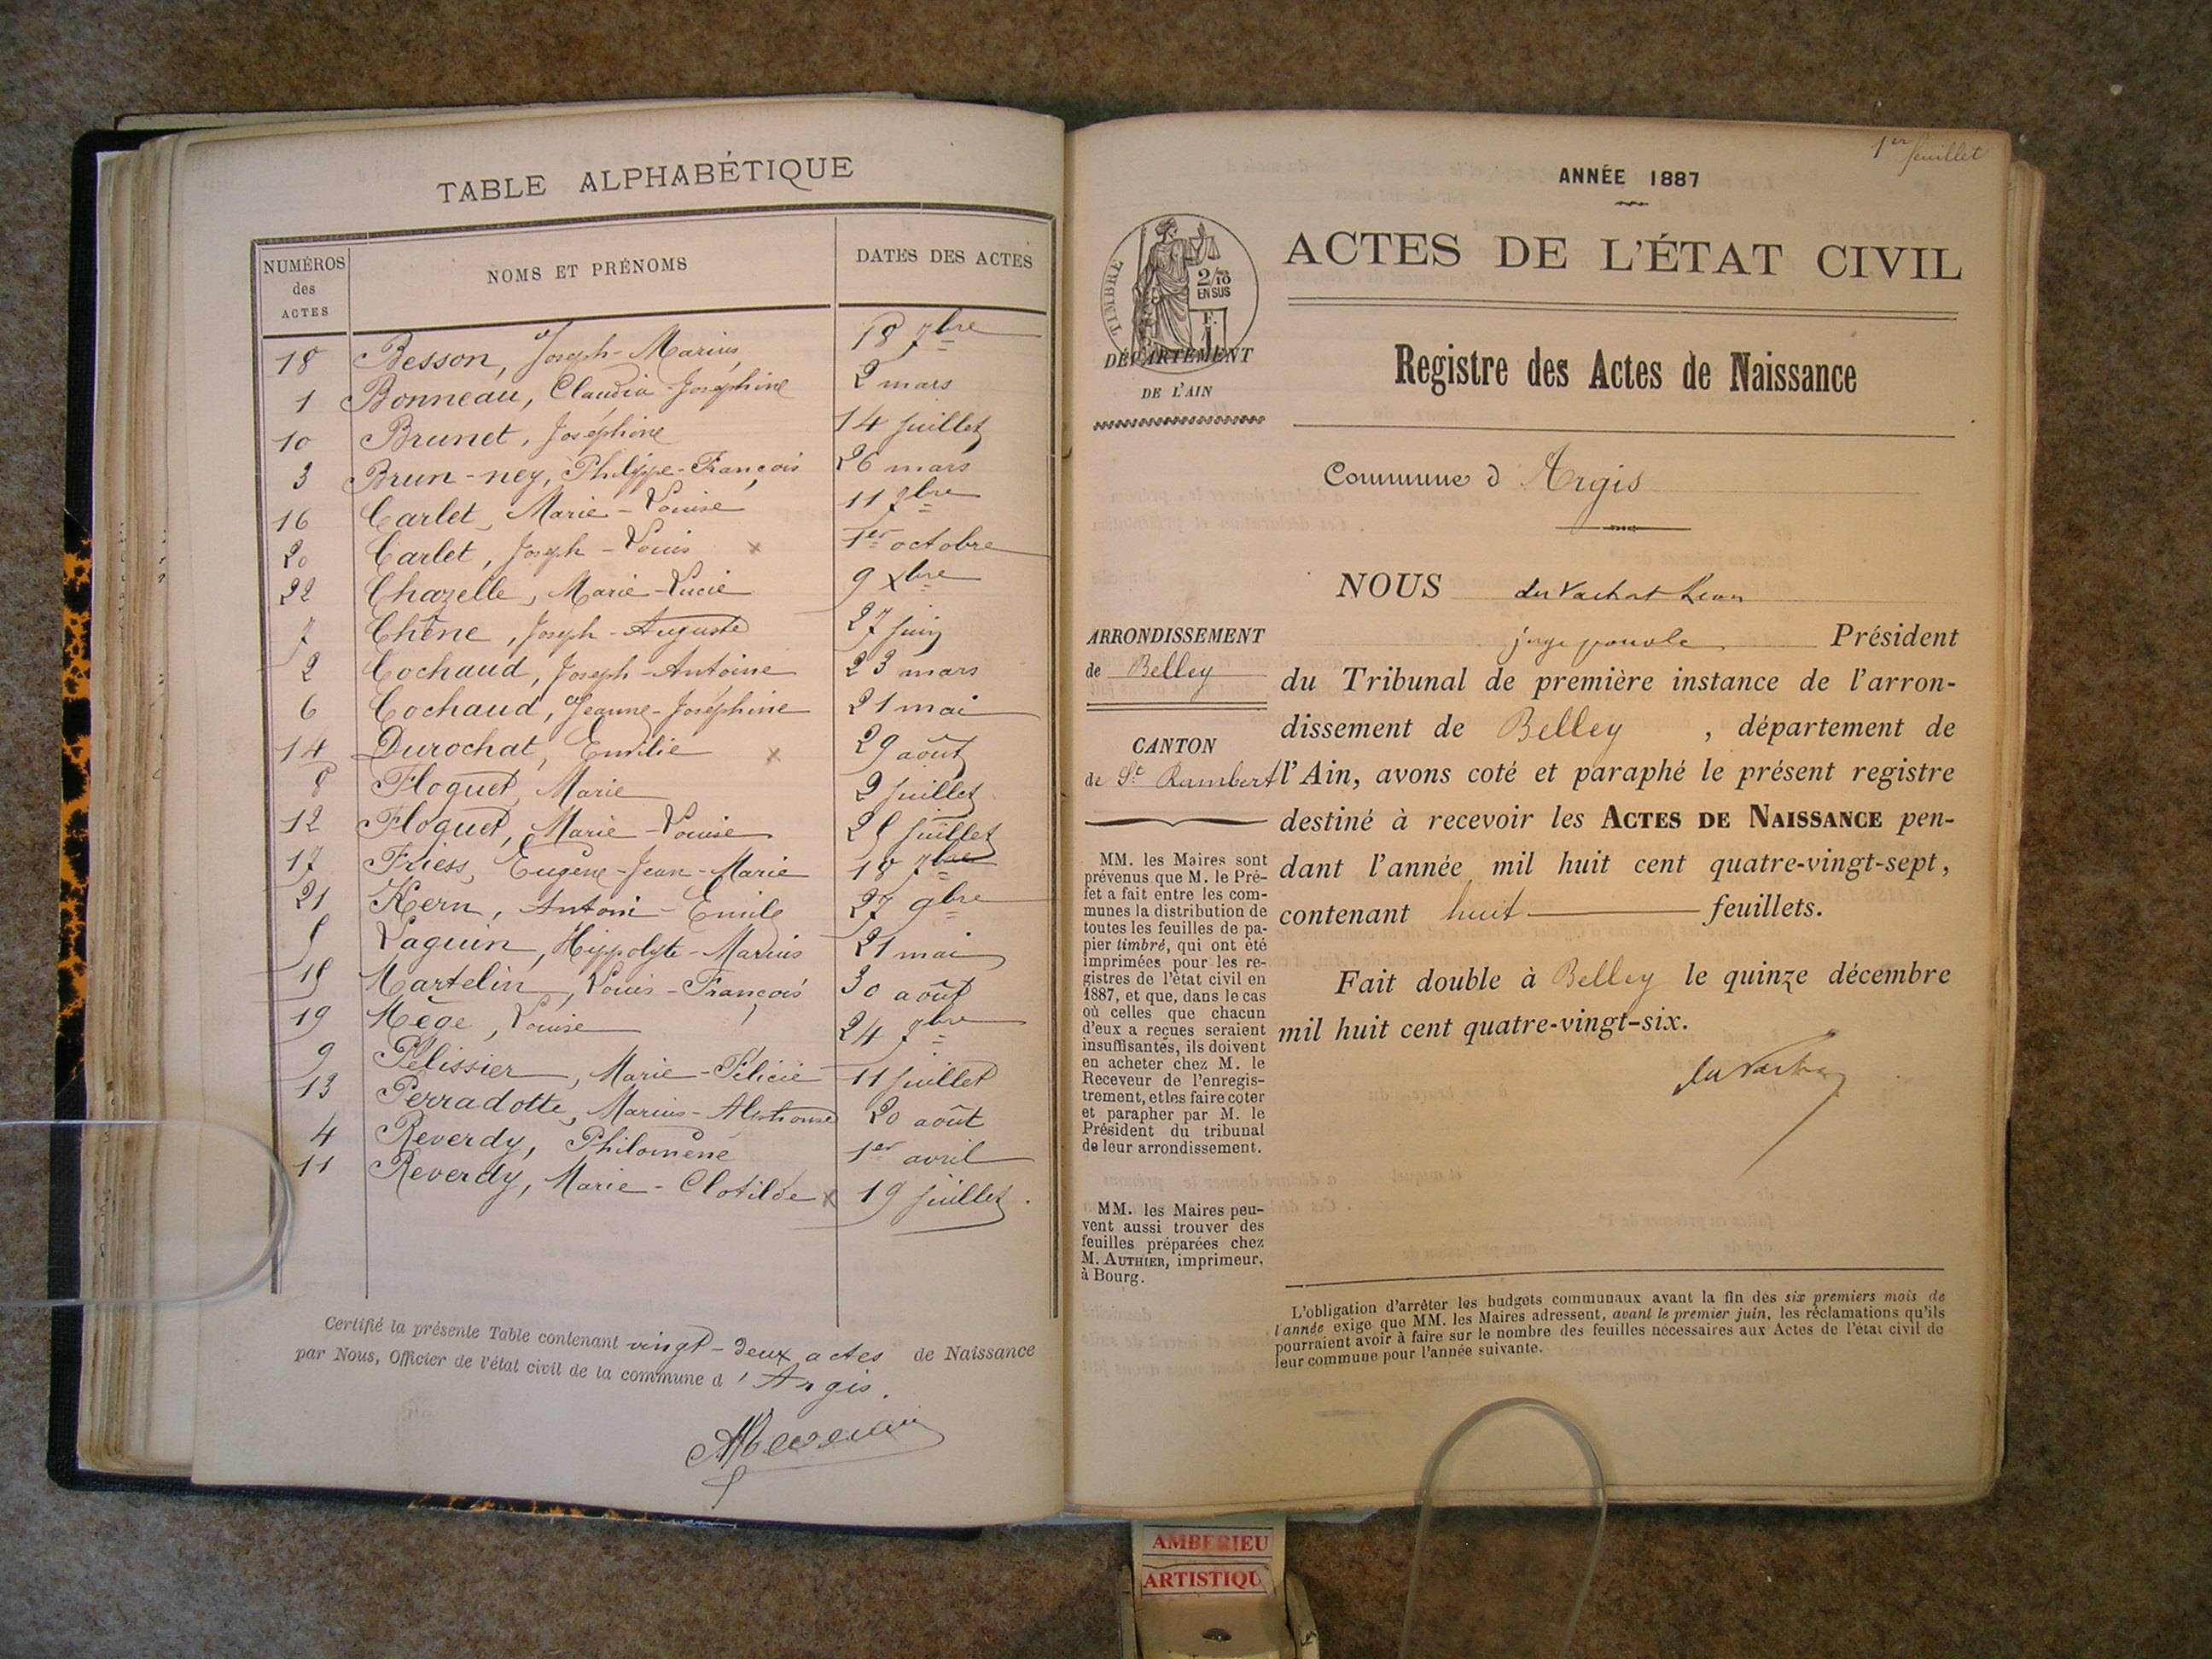 TABLE ALPHABÉTIQUE
NUMÉROS
des
ACTES
NOMS ET PRÉNOMS
DATES DES ACTES
18 Besson, Joseph-Marius 18 7bre
1 Bonneau, Claudia-Joséphine 2 mars
10 Brunet, Joséphine 14 juillet
3 Brun-ney, Philippe-François 26 mars
16 Carlet, Marie-Louise 11 7bre
20 Carlet, Joseph-Louis x 1er octobre
22 Chazelle, Marie-Lucie 9 xbre
7 Chêne, Joseph-Auguste 27 juin
2 Cochaud, Joseph-Antoine 23 mars
6 Cochaud, Jeanne-Joséphine 21 mai
14 Durochat, Emilie x 29 août
8 Floquet, Marie 9 juillet
12 Floquet, Marie-Louise 25 juillet
17 Friess, Eugène-Jean-Marie 18 7bre
21 Kern, Antoni-Emile 27 9bre
5 Laguin, Hippolyte-Marius 21 mai
15 Martelin, Louis-François 30 août
19 Mège, Louise 24 7bre
9 Pélissier, Marie-Félicie 11 juillet
13 Perradotte, Marius-Alphonse 20 août
4 Reverdy, Philomène 1er avril
11 Reverdy, Marie-Clotilde x 19 juillet.
Certifié la présente Table contenant vingt-deux actes de Naissance
par Nous, Officier de l'état civil de la commune d'Argis.
1er feuillet
ANNÉE 1887
TIMBRE
2/10
EN SUS
F.
1
DÉPARTEMENT
DE L'AIN
ACTES DE L'ÉTAT CIVIL
Registre des Actes de Naissance
Commune d Argis
ARRONDISSEMENT
de Belley
CANTON
de St Rambert
MM. les Maires sont
prévenus que M. le Pré-
fet a fait entre les com-
munes la distribution de
toutes les feuilles de pa-
pier timbré, qui ont été
imprimées pour les re-
gistres de l'état civil en
1887, et que, dans le cas
où celles que chacun
d'eux a reçues seraient
insuffisantes, ils doivent
en acheter chez M. le
Receveur de l'enregis-
trement, et les faire coter
et parapher par M. le
Président du tribunal
de leur arrondissement.
MM. les Maires peu-
vent aussi trouver des
feuilles préparées chez
M. AUTHIER, imprimeur,
à Bourg.
NOUS
Président
du Tribunal de première instance de l'arron-
dissement de Belley , département de
l'Ain, avons coté et paraphé le présent registre
destiné à recevoir les ACTES DE NAISSANCE pen-
dant l'année mil huit cent quatre-vingt-sept,
contenant huit feuillets.
Fait double à Belley le quinze décembre
mil huit cent quatre-vingt-six.
L'obligation d'arrêter les budgets communaux avant la fin des six premiers mois de
l'année exige que MM. les Maires adressent, avant le premier juin, les réclamations qu'ils
pourraient avoir à faire sur le nombre des feuilles nécessaires aux Actes de l'état civil de
leur commune pour l'année suivante.
AMBERIEU
ARTISTIQU